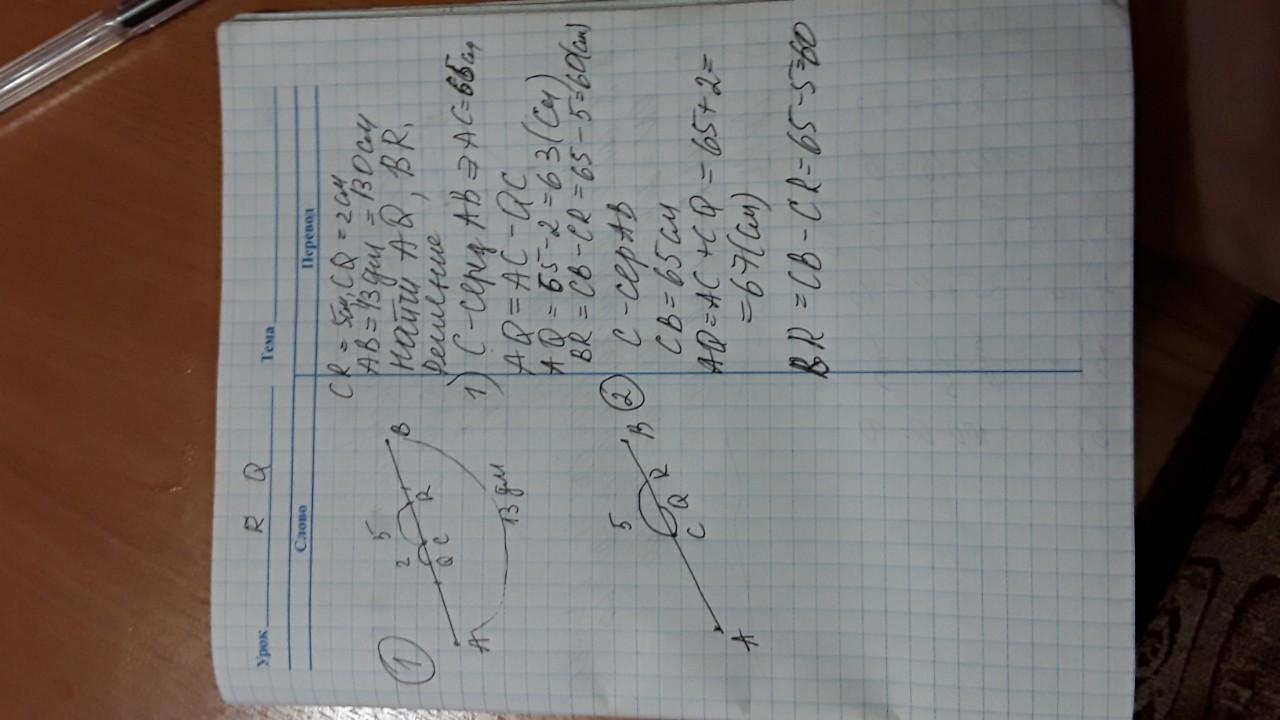 Урок R Q Тема
Слово Перевод
CR = 5см, CQ = 2см
AB = 13дм = 130см
Найти AQ, BR.
Решение
1) C - серед AB ⇒ AC = 65см
AQ = AC - QC
AQ = 65 - 2 = 63 (см)
BR = CB - CR = 65 - 5 = 60(см)
1
2 5
A Q C R B
13 дм
2
C - сер AB
CB = 65 см
AQ = AC + CQ = 65 + 2 =
= 67(см)
BR = CB - CR = 65 - 5 = 60
5
A C Q R B